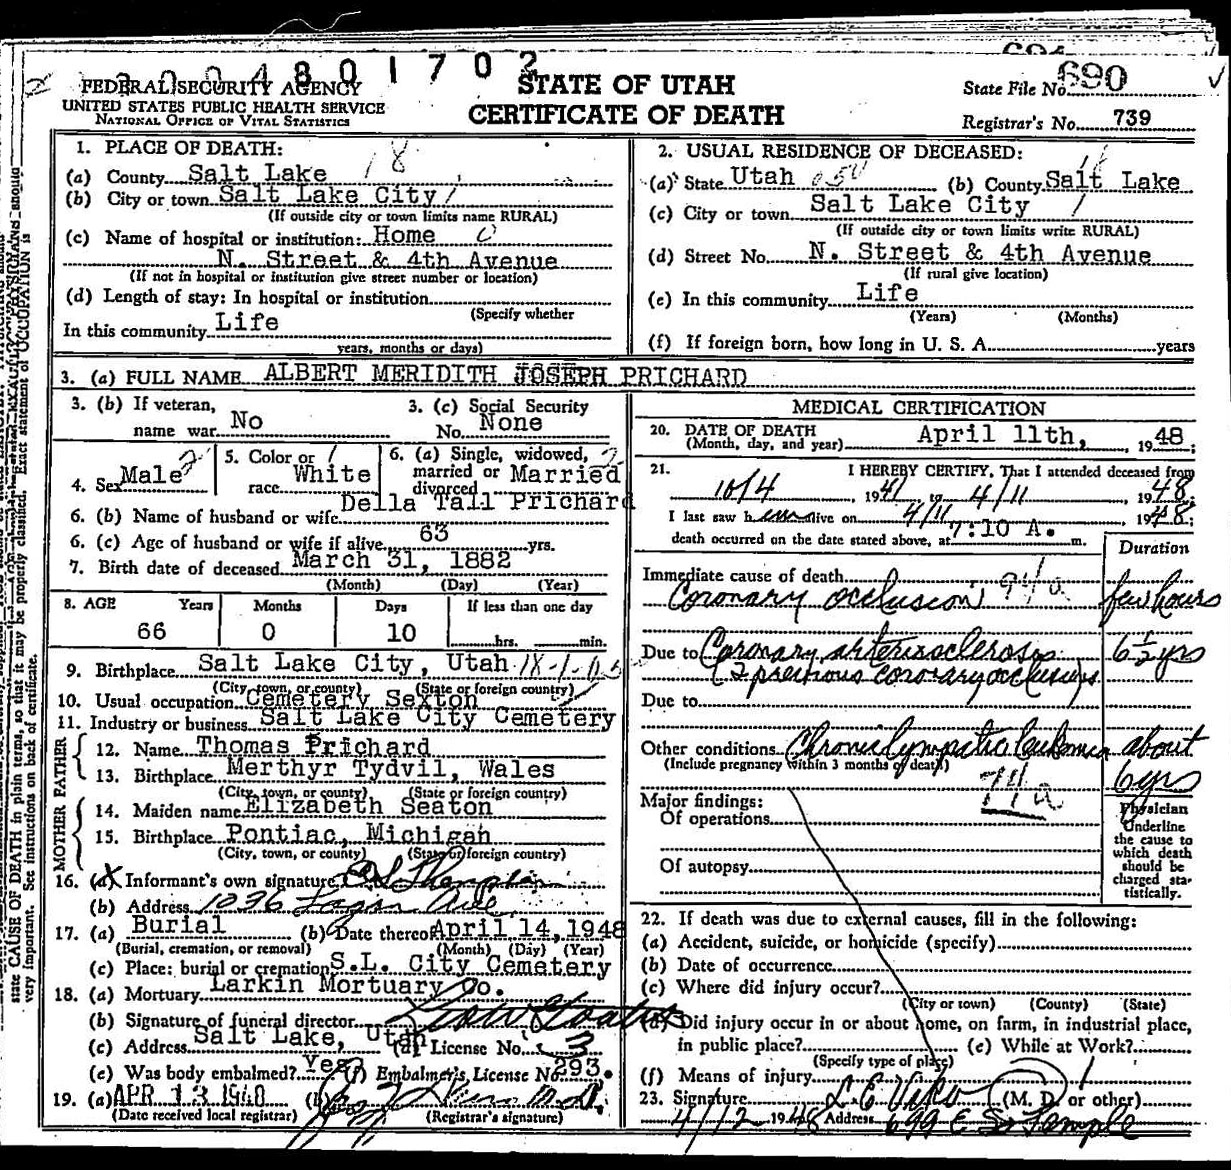 4801702
690
FEDERAL SECURITY AGENCY
UNITED STATES PUBLIC HEALTH SERVICE
NATIONAL OFFICE OF VITAL STATISTICS
STATE OF UTAH
CERTIFICATE OF DEATH
State File No. 690
Registrar's No. 739
1. PLACE OF DEATH: 18
(a) County Salt Lake
(b) City or town Salt Lake City 1
(If outside city or town limits name RURAL)
(c) Name of hospital or institution: Home 0
N. Street & 4th Avenue
(If not in hospital or institution give street number or location)
(d) Length of stay: In hospital or institution
(Specify whether
In this community Life
years, months or days)
2. USUAL RESIDENCE OF DECEASED:
(a) State Utah (b) County Salt Lake
(c) City or town Salt Lake City 1
(If outside city or town limits write RURAL)
(d) Street No. N. Street & 4th Avenue
(If rural give location)
(e) In this community Life
(Years) (Months)
(f) If foreign born, how long in U. S. A. years
3. (a) FULL NAME ALBERT MERIDITH JOSEPH PRICHARD
3. (b) If veteran, name war No
3. (c) Social Security No. None
4. Sex Male 2
5. Color or race White 1
6. (a) Single, widowed, married or divorced Married 2
6. (b) Name of husband or wife Della Tall Prichard
6. (c) Age of husband or wife if alive 63 yrs.
7. Birth date of deceased March 31, 1882
(Month) (Day) (Year)
8. AGE Years Months Days If less than one day
66 0 10 hrs. min.
9. Birthplace Salt Lake City, Utah
(City, town, or county) (State or foreign country)
10. Usual occupation Cemetery Sexton
11. Industry or business Salt Lake City Cemetery
FATHER
12. Name Thomas Prichard
13. Birthplace Merthyr Tydvil, Wales
(City, town, or county) (State or foreign country)
MOTHER
14. Maiden name Elizabeth Seaton
15. Birthplace Pontiac, Michigan
(City, town, or county) (State or foreign country)
16. (a) Informant's own signature
(b) Address 1036 Logan Ave
17. (a) Burial (b) Date thereof April 14, 1948
(Burial, cremation, or removal) (Month) (Day) (Year)
(c) Place: burial or cremation S.L. City Cemetery
18. (a) Mortuary Larkin Mortuary Co.
(b) Signature of funeral director
(c) Address Salt Lake, Utah (d) License No. 3
(e) Was body embalmed? Yes (f) Embalmer's License No. 293.
19. (a) APR 13 1948 (b)
(Date received local registrar) (Registrar's signature)
MEDICAL CERTIFICATION
20. DATE OF DEATH
(Month, day, and year) April 11th, 1948;
21. I HEREBY CERTIFY, That I attended deceased from
10/4, 1941 to 4/11, 1948;
I last saw him alive on 4/11, 1948;
death occurred on the date stated above, at 7:10 A. m.
Duration
Immediate cause of death 94a
Coronary occlusion few hours
Due to Coronary arteriosclerosis 6 1/2 yrs
(2 previous coronary occlusions
Due to
Other conditions Chronic lympatic leukemia about
(Include pregnancy within 3 months of death)
74a 6 yrs
Major findings:
Of operations
Of autopsy
Physician
Underline
the cause to
which death
should be
charged sta-
tistically.
22. If death was due to external causes, fill in the following:
(a) Accident, suicide, or homicide (specify)
(b) Date of occurrence
(c) Where did injury occur?
(City or town) (County) (State)
(d) Did injury occur in or about home, on farm, in industrial place,
in public place? (e) While at Work?
(Specify type of place)
(f) Means of injury
23. Signature (M. D. or other)
4/12 1948 Address 699 E So Temple
state CAUSE OF DEATH in plain terms, so that it may be properly classified. Exact statement of OCCUPATION is
very important. See instructions on back of certificate.